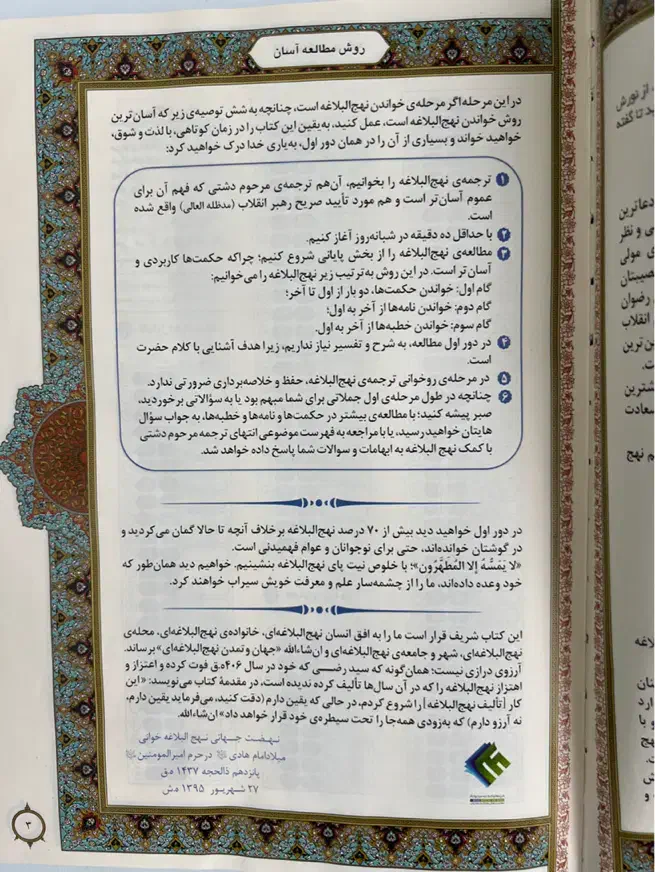 روش مطالعه آسان
در این مرحله اگر مرحله‌ی خواندن نهج‌البلاغه است، چنانچه به شش توصیه‌ی زیر که آسان‌ترین
روش خواندن نهج‌البلاغه است، عمل کنید، به‌یقین این کتاب را در زمان کوتاهی، با لذت و شوق،
خواهید خواند و بسیاری از آن را در همان دور اول، به‌یاری خدا درک خواهید کرد:
۱ ترجمه‌ی نهج‌البلاغه را بخوانیم، آن‌هم ترجمه‌ی مرحوم دشتی که فهم آن برای
عموم آسان‌تر است و هم مورد تأیید صریح رهبر انقلاب (مدظله العالی) واقع شده
است.
۲ با حداقل ده دقیقه در شبانه‌روز آغاز کنیم.
۳ مطالعه‌ی نهج‌البلاغه را از بخش پایانی شروع کنیم؛ چراکه حکمت‌ها کاربردی و
آسان‌تر است. در این روش به‌ترتیب زیر نهج‌البلاغه را می‌خوانیم:
گام اول: خواندن حکمت‌ها، دو بار از اول تا آخر؛
گام دوم: خواندن نامه‌ها از آخر به اول؛
گام سوم: خواندن خطبه‌ها از آخر به اول.
۴ در دور اول مطالعه، به شرح و تفسیر نیاز نداریم، زیرا هدف آشنایی با کلام حضرت
است.
۵ در مرحله‌ی روخوانی ترجمه‌ی نهج‌البلاغه، حفظ و خلاصه‌برداری ضرورتی ندارد.
۶ چنانچه در طول مرحله‌ی اول جملاتی برای شما مبهم بود یا به سؤالاتی برخوردید،
صبر پیشه کنید؛ با مطالعه‌ی بیشتر در حکمت‌ها و نامه‌ها و خطبه‌ها، به جواب سؤال
هایتان خواهید رسید، یا با مراجعه به فهرست موضوعی انتهای ترجمه مرحوم دشتی
با کمک نهج البلاغه به ابهامات و سوالات شما پاسخ داده خواهد شد.
در دور اول خواهید دید بیش از ۷۰ درصد نهج‌البلاغه برخلاف آنچه تا حالا گمان می‌کردید و
در گوشتان خوانده‌اند، حتی برای نوجوانان و عوام فهمیدنی است.
«لا یَمَسُّهُ إلا المُطَهَّرُون»؛ با خلوص نیت پای نهج‌البلاغه بنشینیم. خواهیم دید همان‌طور که
خود وعده داده‌اند، ما را از چشمه‌سار علم و معرفت خویش سیراب خواهند کرد.
این کتاب شریف قرار است ما را به افق انسان نهج‌البلاغه‌ای، خانواده‌ی نهج‌البلاغه‌ای، محله‌ی
نهج‌البلاغه‌ای، شهر و جامعه‌ی نهج‌البلاغه‌ای و ان‌شاءالله «جهان و تمدن نهج‌البلاغه‌ای» برساند.
آرزوی درازی نیست؛ همان‌گونه که سید رضی که خود در سال ۴۰۶ه‌.ق فوت کرده و اعتزاز و
اهتزاز نهج‌البلاغه را که در آن سال‌ها تألیف کرده ندیده است، در مقدمهٔ کتاب می‌نویسد: «این
کار [تألیف نهج‌البلاغه] را شروع کردم، در حالی که یقین دارم (دقت کنید، می‌فرماید یقین دارم،
نه آرزو دارم) که به‌زودی همه‌جا را تحت سیطره‌ی خود قرار خواهد داد» ان‌شاءالله.
نهضت جهانی نهج البلاغه خوانی
میلاد امام هادی در حرم امیرالمومنین
پانزدهم ذالحجه ۱۴۳۷ ه‌ق
۲۷ شهریور ۱۳۹۵ ه‌ش
۳